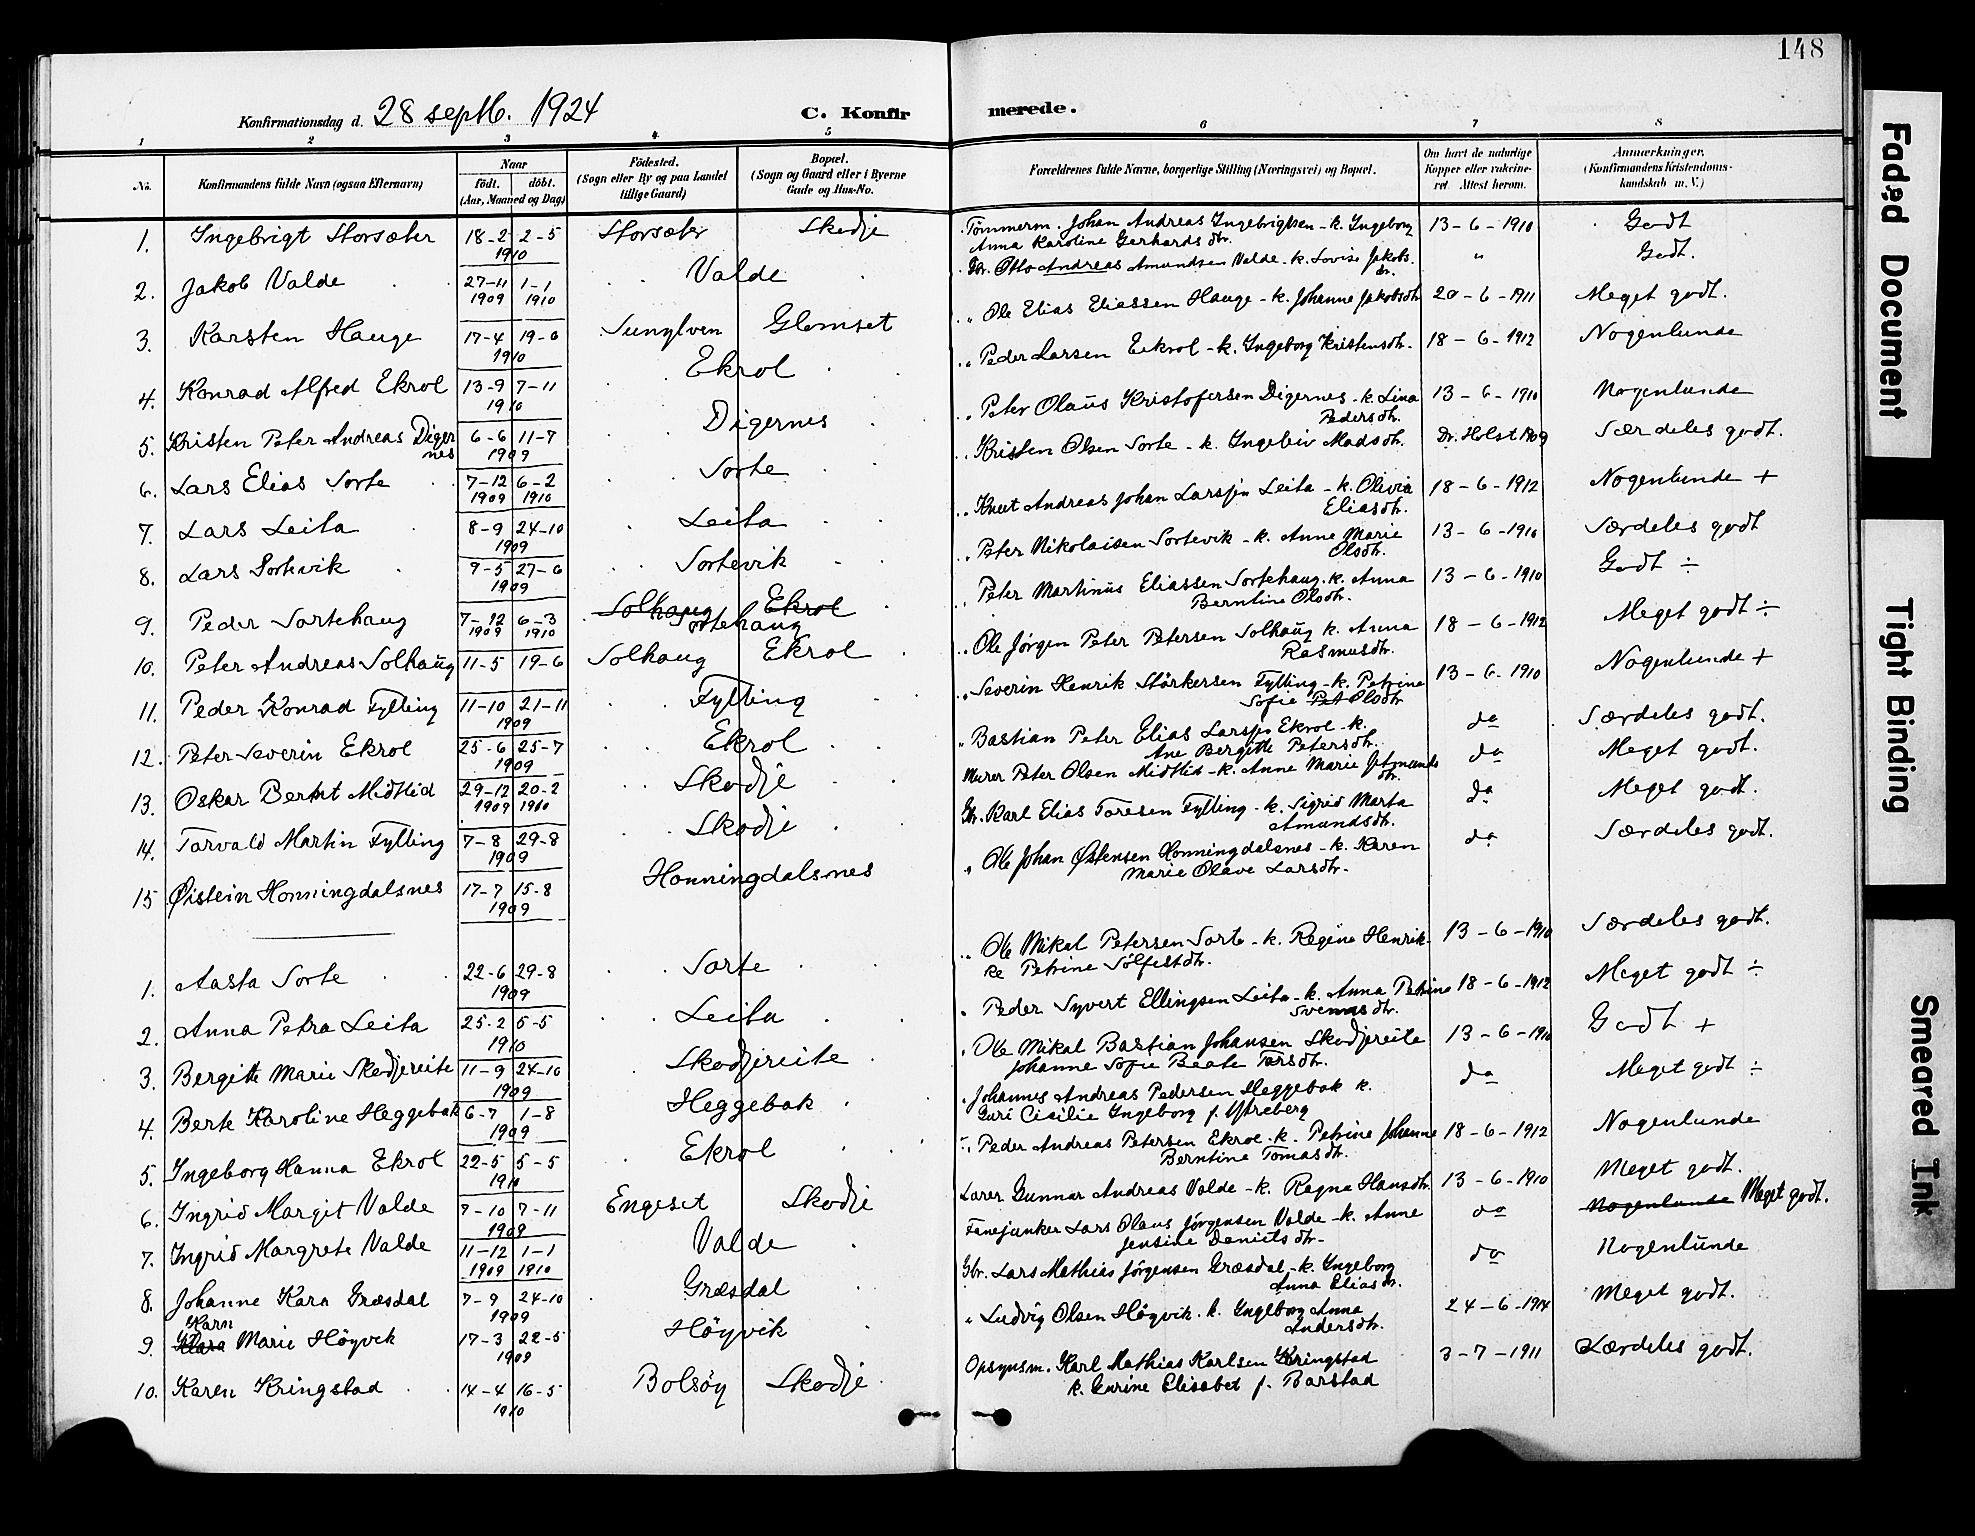 148
Konfirmationsdag d. 28 septb. 1924
C. Konfirmerede.
1 2 3 4 5 6 7 8
No. Konfirmandens fulde Navn (ogsaa Efternavn) Naar født. døbt. (Aar, Maaned og Dag) Fødested. (Sogn eller By og paa Landet tillige Gaard) Bopæl. (Sogn og Gaard eller i Byerne Gade og Hus-No. Forældrenes fulde Navne, borgerlige Stilling (Næringsvei) og Bopæl. Om havt de naturlige Kopper eller vakcineret. Attest herom. Anmærkninger. (Konfirmandens Kristendomskundskab m. V.)
1. Ingebrigt Storsæter 18-2 2-5 1910 Storsæter Skodje Tømmerm. Johan Andreas Ingebrigtsen - k. Ingeborg Anna Karoline Gerhardsdtr. 13-6-1910 Godt
2. Jakob Valde 27-11 1909 1-1 1910 Valde Gbr. Otto Andreas Amundsen Valde - k. Lovise Jakobsdr. " Godt.
3. Karsten Hauge 17-4 19-6 1910 Sunylven Glomset " Ole Elias Eliassen Hauge - k. Johanne Jakobsdtr 20-6-1911 Meget godt.
4. Konrad Alfred Ekrol 13-9 7-11 1910 Ekrol " Peder Larsen Eikrol - k. Ingeborg Kristensdtr. 18-6-1912 Nogenlunde
5. Kristen Peter Andreas Digernes 6-6 11-7 1909 Digernes " Peter Olaus Kristofersen Digernes - k. Lina Pedersdtr. 13-6-1910 Nogenlunde
6. Lars Elias Sorte 7-12 1909 6-2 1910 Sorte " Kristen Olsen Sorte - k. Ingebeiv Madsdtr. Dr. Holst 1909 Særdeles godt.
7. Lars Leita 8-9 24-10 1909 Leita " Knut Andreas Johan Larssen Leita - k. Olivia Eliasdtr. 18-6-1912 Nogenlunde +
8. Lars Sortevik 9-5 27-6 1909 Sortevik " Peter Nikolaisen Sortevik - k. Anne Marie Olsdtr. 13-6-1910 Særdeles godt
9. Peder Sortehaug 7-12 1909 6-3 1910 Solhaug Ekrol Sortehaug " Peter Martinus Eliassen Sortehaug. k. Anna Berntine Olsdtr. 13-6-1910 Godt ÷
10. Peter Andreas Solhaug 11-5 19-6 Solhaug Ekrol " Ole Jørgen Peter Petersen Solhaug k. Anna Rasmusdtr. 18-6-1912 Meget godt ÷
11. Peder Konrad Fylling 11-10 21-11 1909 Fylling " Severin Henrik Størkersen Fylling - k. Petrine Sofie Pet Olsdtr 13-6-1910 Nogenlunde +
12. Peter Severin Ekrol 25-6 25-7 1909 Ekrol " Bastian Peter Elias Larssen Ekrol - k. Ane Bergitte Petersdtr. do Særdeles godt.
13. Oskar Bernt Midtlid 29-12 1909 20-2 1910 Skodje Murer Peter Olsen Midtlid - k. Anne Marie Jetmundsdtr. do Meget godt.
14. Torvald Martin Fylling 7-8 29-8 1909 Skodje Gbr. Karl Elias Toresen Fylling - k. Sigrid Marta Amundsdtr. do Meget godt.
15 Øistein Honningdalsnes 17-7 15-8 1909 Honningdalsnes " Ole Johan Østensen Honningdalsnes - k. Karen Marie Olave Larsdtr. do Særdeles godt.
1. Aasta Sorte 22-6 29-8 1909 Sorte " Ole Mikal Petersen Sorte - k. Regine Henrikke Petrine Sølfestdtr. 13-6-1910 Særdeles godt.
2. Anna Petra Leita 25-2 5-5 1910 Leita " Peder Syvert Ellingsen Leita - k. Anna Petrine Svensdtr. 18-6-1912 Meget godt ÷
3. Bergitte Marie Skodjereite 11-9 24-10 1909 Skodjereite " Ole Mikal Bastian Johansen Skodjereite Johanne Sofie Beate Tørsdtr. 13-6-1910 Godt +
4. Berte Karoline Heggebak 6-7 1-8 1909 Heggebak " Johannes Andreas Pedersen Heggebak k. Guri Cicilie Ingeborg f. Ytreberg do Meget godt ÷
5. Ingeborg Hanna Ekrol 22-5 5-5 1910 Ekrol " Peder Andreas Petersen Ekrol. k. Petrine Johanne Berntine Tomasdtr. 18-6-1912 Nogenlunde
6. Ingrid Margit Valde 7-10 7-11 1909 Engeset Skodje Lærer Gunnar Andreas Valde - k. Ragna Hansdtr. 13-6-1910 Meget godt.
7. Ingrid Margrete Valde 11-12 1909 1-1 1910 Valde Fanejunker Lars Olaus Jørgensen Valde - k. Anne Jensine Danielsdtr. do Nogenlunde Meget godt.
8. Johanne Kara Græsdal 7-9 24-10 1909 Græsdal Gbr. Lars Mathias Jørgensen Græsdal - k. Ingeborg Anna Eliasdtr. do Nogenlunde
9. Klara Karn Marie Høyvik 17-3 22-5 1909 Høyvik " Ludvig Olsen Høgvik. k. Ingeborg Anna Andersdtr. 24-6-1914 Meget godt.
10. Karen Kringstad 14-4 16-5 1910 Bolsøy Skodje Opsynsm. Karl Mathias Karlsen Kringstad k. Gurine Elisabet f. Barstad 3-7-1911 Særdeles godt.
Faded Document
Tight Binding
Smeared Ink